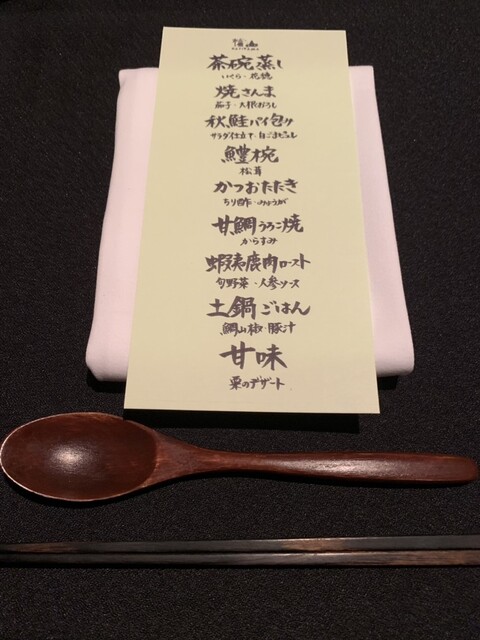 茶碗蒸し
いくら・花穂
焼さんま
茄子・大根おろし
秋鮭パイ包ケ
サラダ仕立て・白ごまピュレ
鱧椀
松茸
かつおたたき
ちり酢・みょうが
甘鯛うろこ焼
からすみ
蝦夷鹿肉ロースト
旬野菜・人参ソース
土鍋ごはん
鯛山椒・豚汁
甘味
栗のデザート